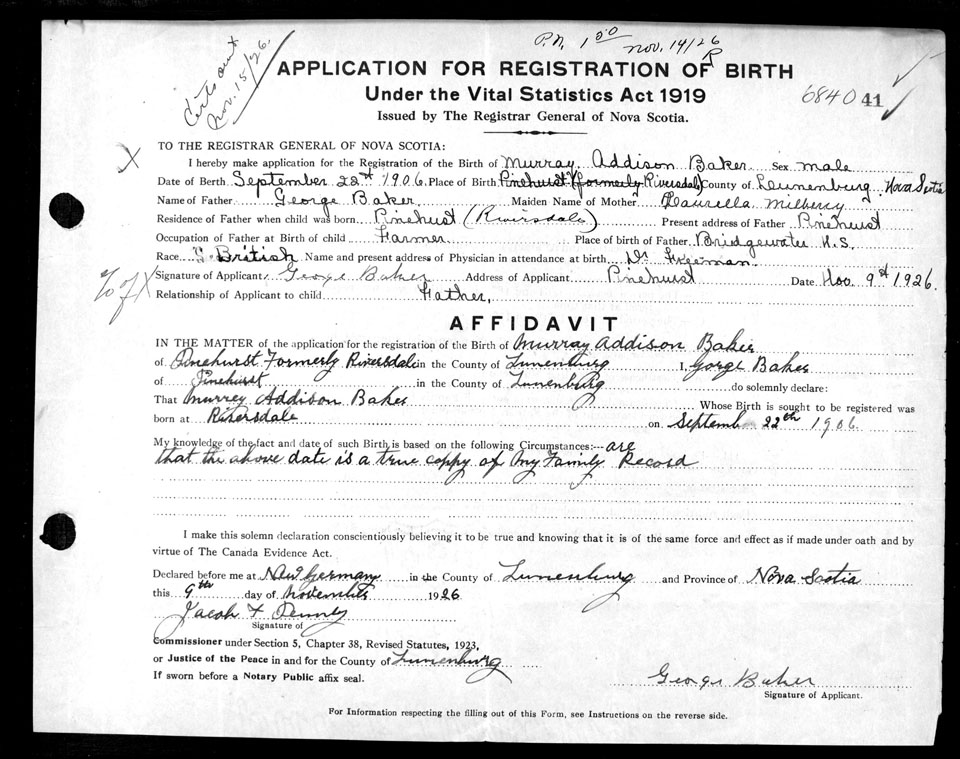 P.N. 1 50 Nov. 14/26
R
Certs out
Nov. 15/26.
APPLICATION FOR REGISTRATION OF BIRTH
Under the Vital Statistics Act 1919
6840 41
Issued by The Registrar General of Nova Scotia.
TO THE REGISTRAR GENERAL OF NOVA SCOTIA:
I hereby make application for the Registration of the Birth of Murray Addison Baker Sex male
Date of Berth September 22nd 1906. Place of Birth Pinehurst (formerly Riversdale) County of Lunenburg, Nova Scotia
Name of Father George Baker Maiden Name of Mother Milbery
Residence of Father when child was born Pinehurst (Riversdale) Present address of Father Pinehurst
Occupation of Father at Birth of child Farmer Place of birth of Father Bridgewater N.S.
Race British Name and present address of Physician in attendance at birth Dr Freeman.
Signature of Applicant George Baker Address of Applicant Pinehurst Date Nov. 9th 1926.
Relationship of Applicant to child Father,
AFFIDAVIT
IN THE MATTER of the application for the registration of the Birth of Murray Addison Baker
of Pinehurst Formerly Riversdale in the County of Lunenburg I, Gorge Baker
of Pinehurst in the County of Lunenburg do solemnly declare:
That Murrey Addison Baker Whose Birth is sought to be registered was
born at Riversdale on September 22th 1906.
My knowledge of the fact and date of such Birth is based on the following Circumstances:-- are
that the above date is a true coppy of My Family Record
I make this solemn declaration conscientiously believing it to be true and knowing that it is of the same force and effect as if made under oath and by
virtue of The Canada Evidence Act.
Declared before me at New Germany in the County of Lunenburg and Province of Nova Scotia
this 9th day of November 1926
Jacob F
Signature of
Commissioner under Section 5, Chapter 38, Revised Statutes, 1923,
or Justice of the Peace in and for the County of Lunenburg
If sworn before a Notary Public affix seal.
George Baker
Signature of Applicant.
For Information respecting the filling out of this Form, see Instructions on the reverse side.